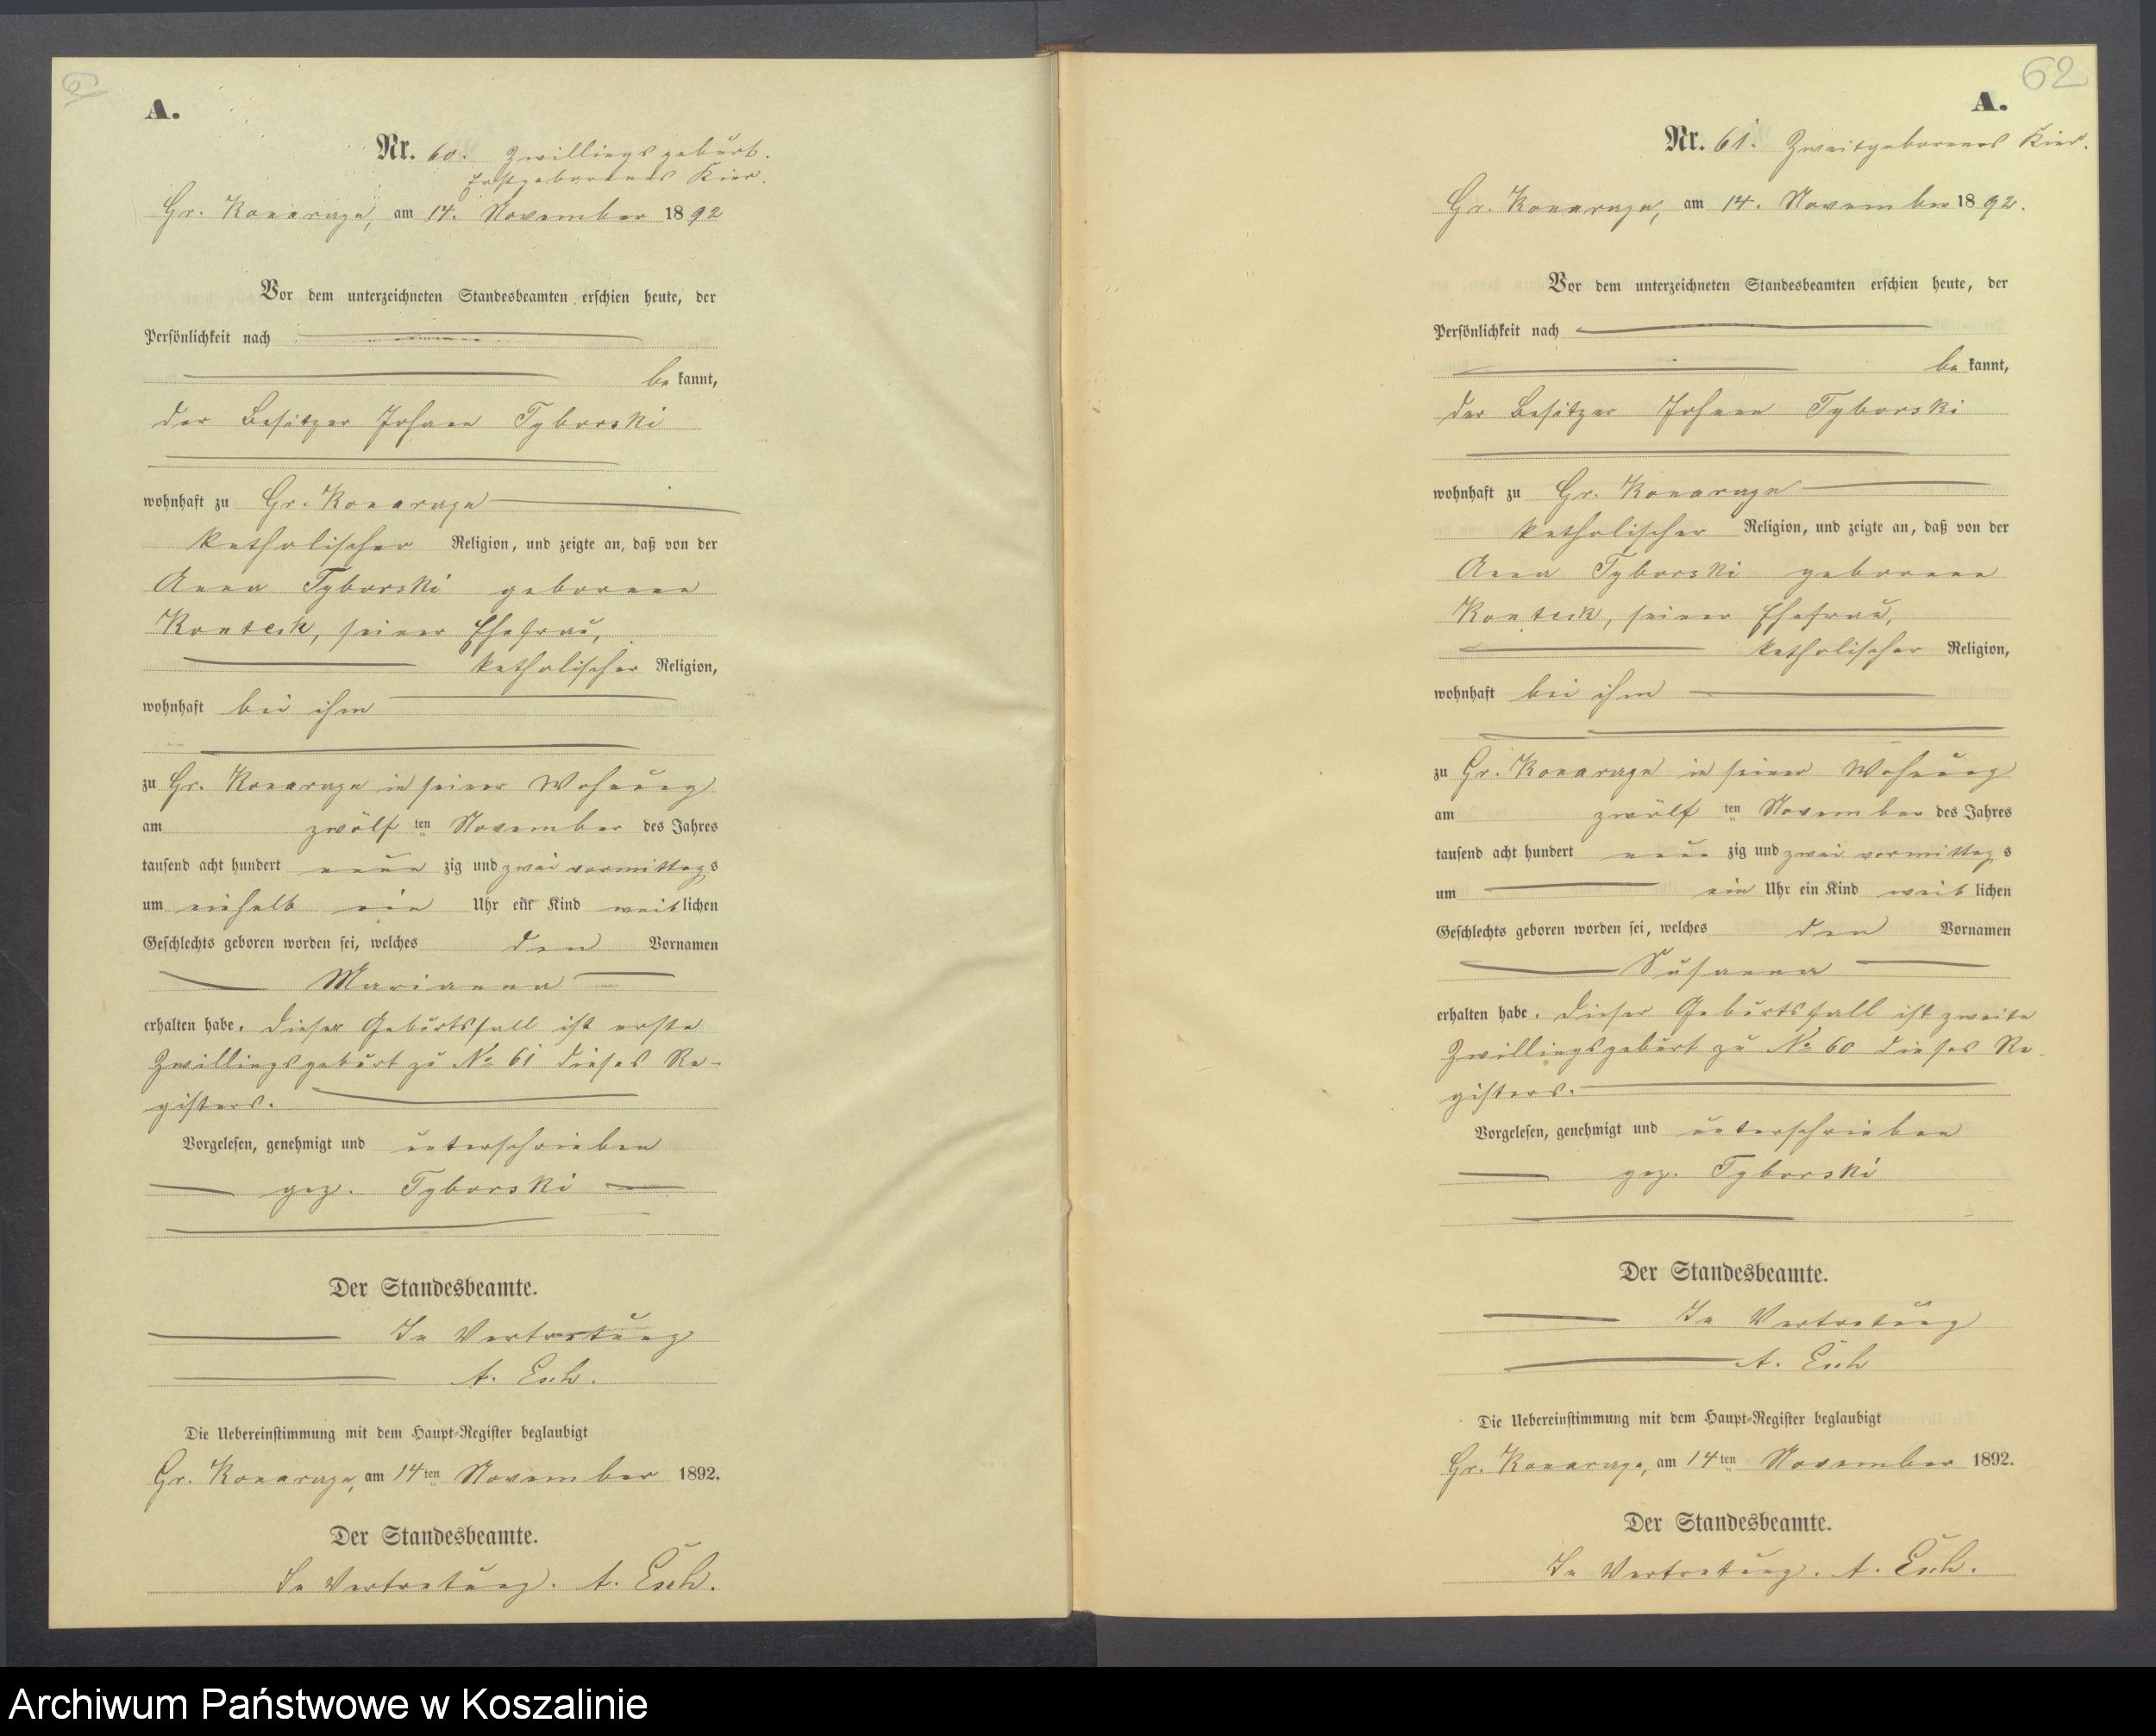 A.
Nr. 60. Zwillingsgeburt.
Erstgeborenes Kind.
Gr. Konarczyn, am 14. November 1892
Vor dem unterzeichneten Standesbeamten erschien heute, der
Persönlichkeit nach
bekannt,
der Besitzer Johann Tyborski
wohnhaft zu Gr. Konarczyn
katholischer Religion, und zeigte an, daß von der
Anna Tyborski geborene
seiner Ehefrau,
katholischer Religion,
wohnhaft bei ihm
zu Gr. Konarczyn in seiner Wohnung
am zwölften November des Jahres
tausend acht hundert neunzig und zwei vormittags
um einhalb ein Uhr ein Kind weiblichen
Geschlechts geboren worden sei, welches den Vornamen
Marianna
erhalten habe. Dieser Geburtsfall ist erste
Zwillingsgeburt zu No 61 dieses Re-
gisters.
Vorgelesen, genehmigt und unterschrieben
gez. Tyborski
Der Standesbeamte.
In Vertretung
A. Esch.
Die Uebereinstimmung mit dem Haupt-Register beglaubigt
Gr. Konarczyn, am 14ten November 1892.
Der Standesbeamte.
In Vertretung. A. Esch.
62
A.
Nr. 61. Zweitgeborenes Kind.
Gr. Konarczyn, am 14. November 1892.
Vor dem unterzeichneten Standesbeamten erschien heute, der
Persönlichkeit nach
bekannt,
der Besitzer Johann Tyborski
wohnhaft zu Gr. Konarczyn
katholischer Religion, und zeigte an, daß von der
Anna Tyborski geborene
seiner Ehefrau,
katholischer Religion,
wohnhaft bei ihm
zu Gr. Konarczyn in seiner Wohnung
am zwölften November des Jahres
tausend acht hundert neunzig und zwei vormittags
um ein Uhr ein Kind weiblichen
Geschlechts geboren worden sei, welches den Vornamen
Susanna
erhalten habe. Dieser Geburtsfall ist zweite
Zwillingsgeburt zu No 60 dieses Re-
gisters.
Vorgelesen, genehmigt und unterschrieben
gez. Tyborski
Der Standesbeamte.
In Vertretung
A. Esch
Die Uebereinstimmung mit dem Haupt-Register beglaubigt
Gr. Konarczyn, am 14ten November 1892.
Der Standesbeamte.
In Vertretung. A. Esch.
Archiwum Państwowe w Koszalinie